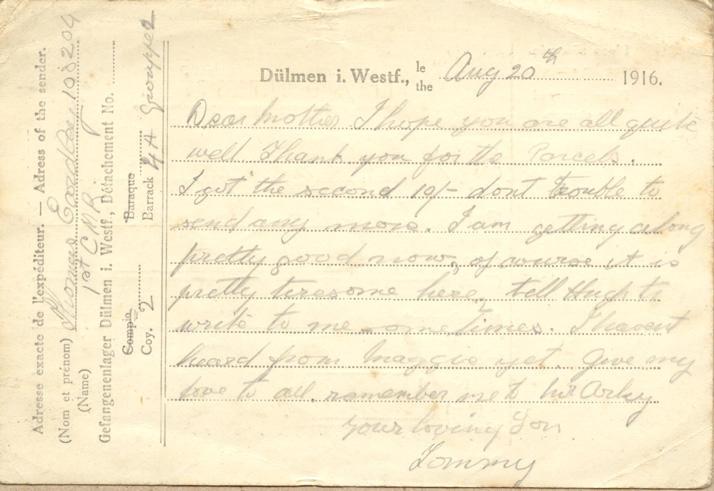 Dülmen i. Westf., le the Aug 20th 1916.
Dear Mother I hope you are all quite
well Thank you for the Parcels.
I got the second 10/- dont trouble to
send any more. I am getting along
pretty good now, of course it is
pretty tiresome here, tell Hugh to
write to me sometimes. I havent
heard from Maggie yet. Give my
love to all. remember me to
your loving Son
Tommy
Adresse exacte de l'expéditeur. — Adress of the sender.
(Nom et prénom) Thomas 108204
(Name) 1st C.M.R.
Gefangenenlager Dülmen i. Westf., Détachement No.
Compie Baraque
Coy. 2 Barrack 4A Gruppe 2